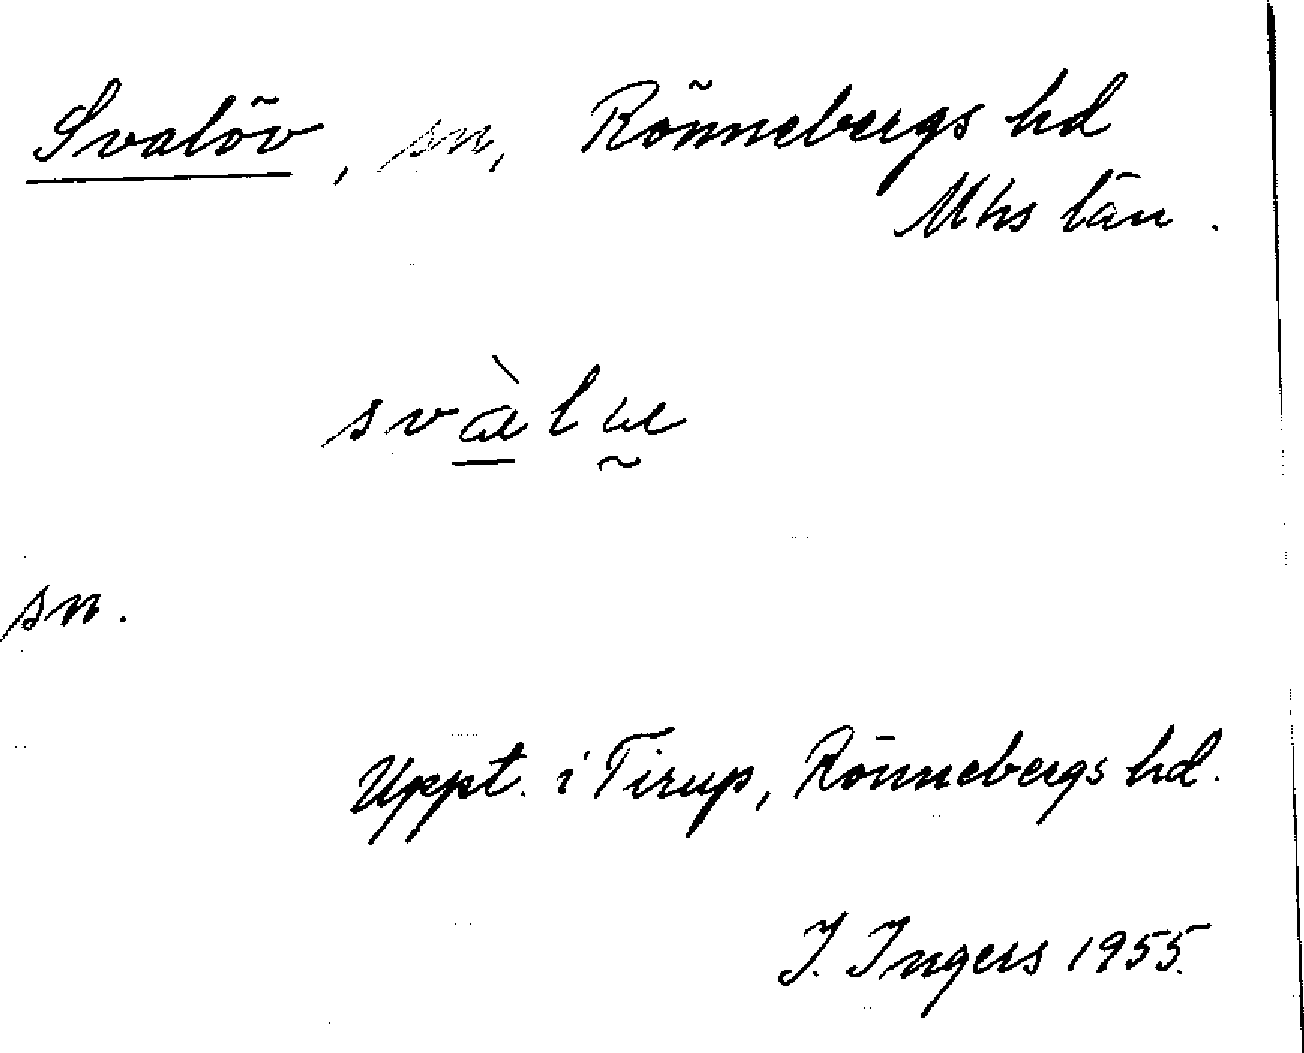 Svalöv, sn, Rönnebergs hd
Mhs län.
svæ̱̀læ̰
sn.
Uppt. i Tirup, Rönnebergs hd.
I. Ingers 1955.